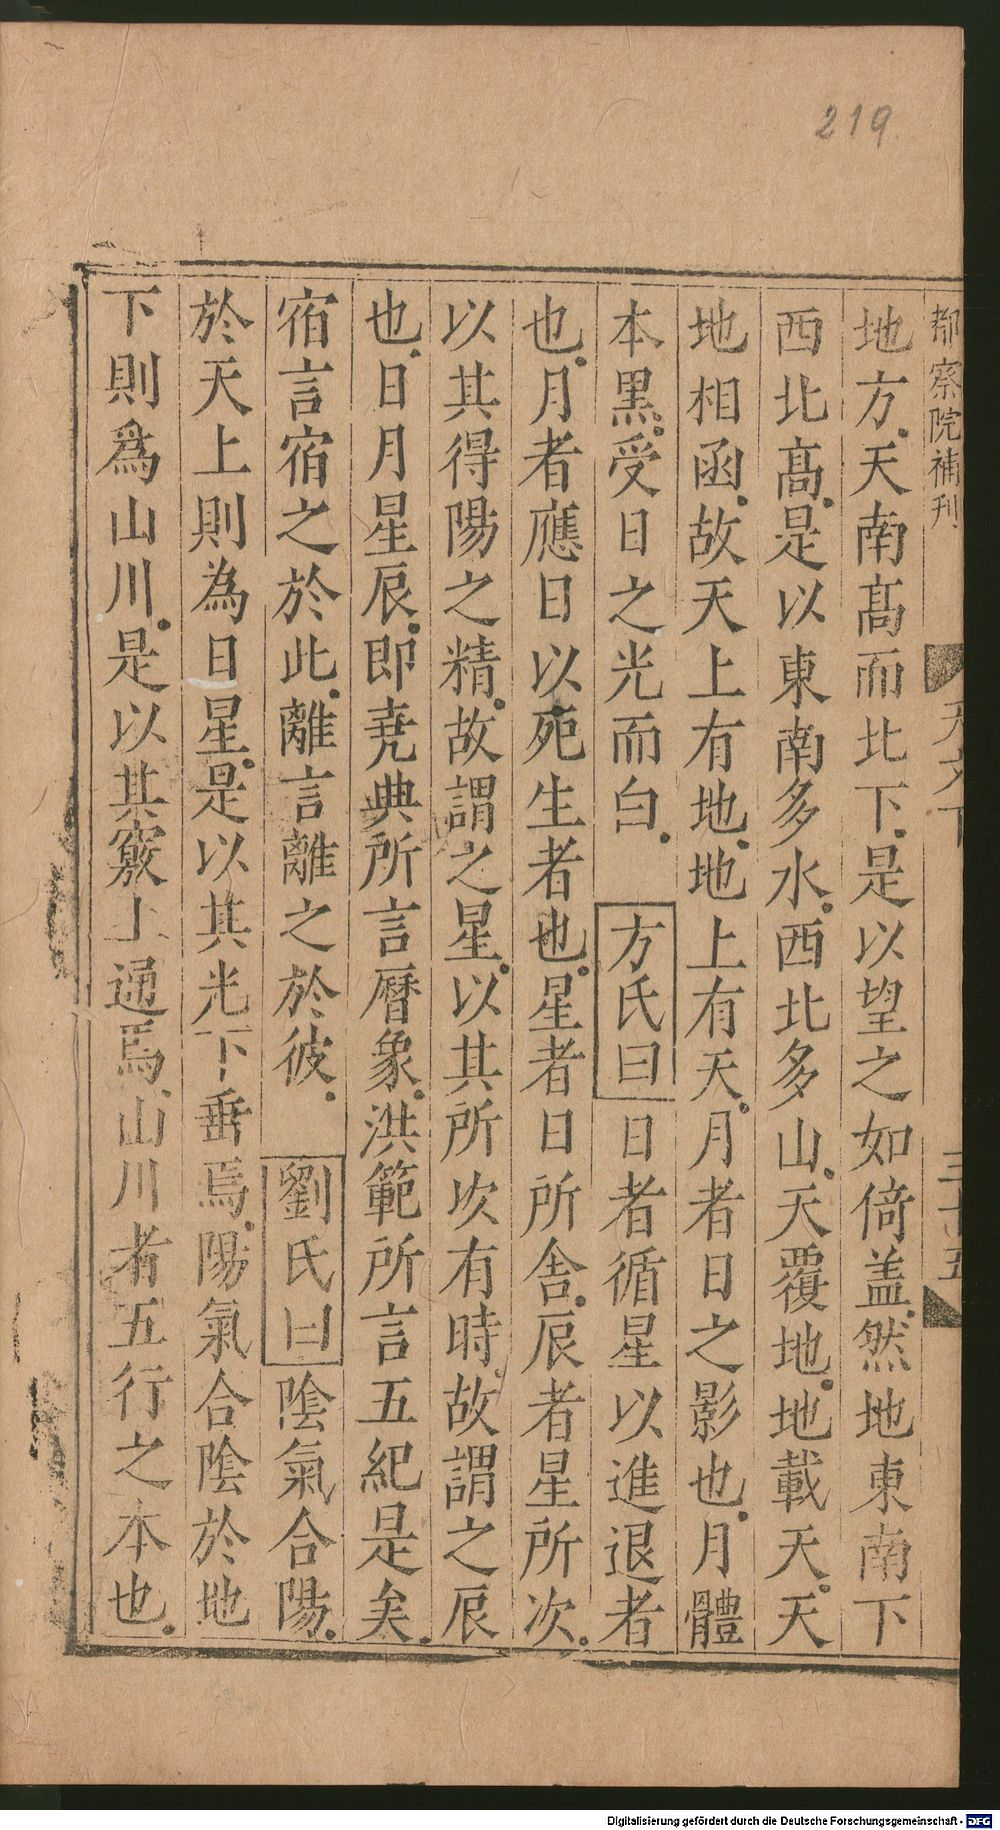 219
都察院補刋
天文下
三十五
地方.天南髙而北下.是以望之如倚盖.然地東南下
西北髙.是以東南多水.西北多山.天覆地.地載天.天
地相函.故天上有地.地上有天.月者日之影也.月體
本黒.受日之光而白. 方氏曰 日者循星以進退者
也.月者應日以死生者也.星者日所舎.辰者星所次.
以其得陽之精.故謂之星.以其所次有時.故謂之辰
也.日月星辰.即尭典所言曆象.洪範所言五紀是矣.
宿言宿之於此.離言離之於彼. 劉氏曰 陰氣合陽.
於天上則為日星.是以其光下垂焉.陽氣合陰於地
下則爲山川.是以其竅上通焉.山川者五行之本也.
Digitalisierung gefördert durch die Deutsche Forschungsgemeinschaft - DFG